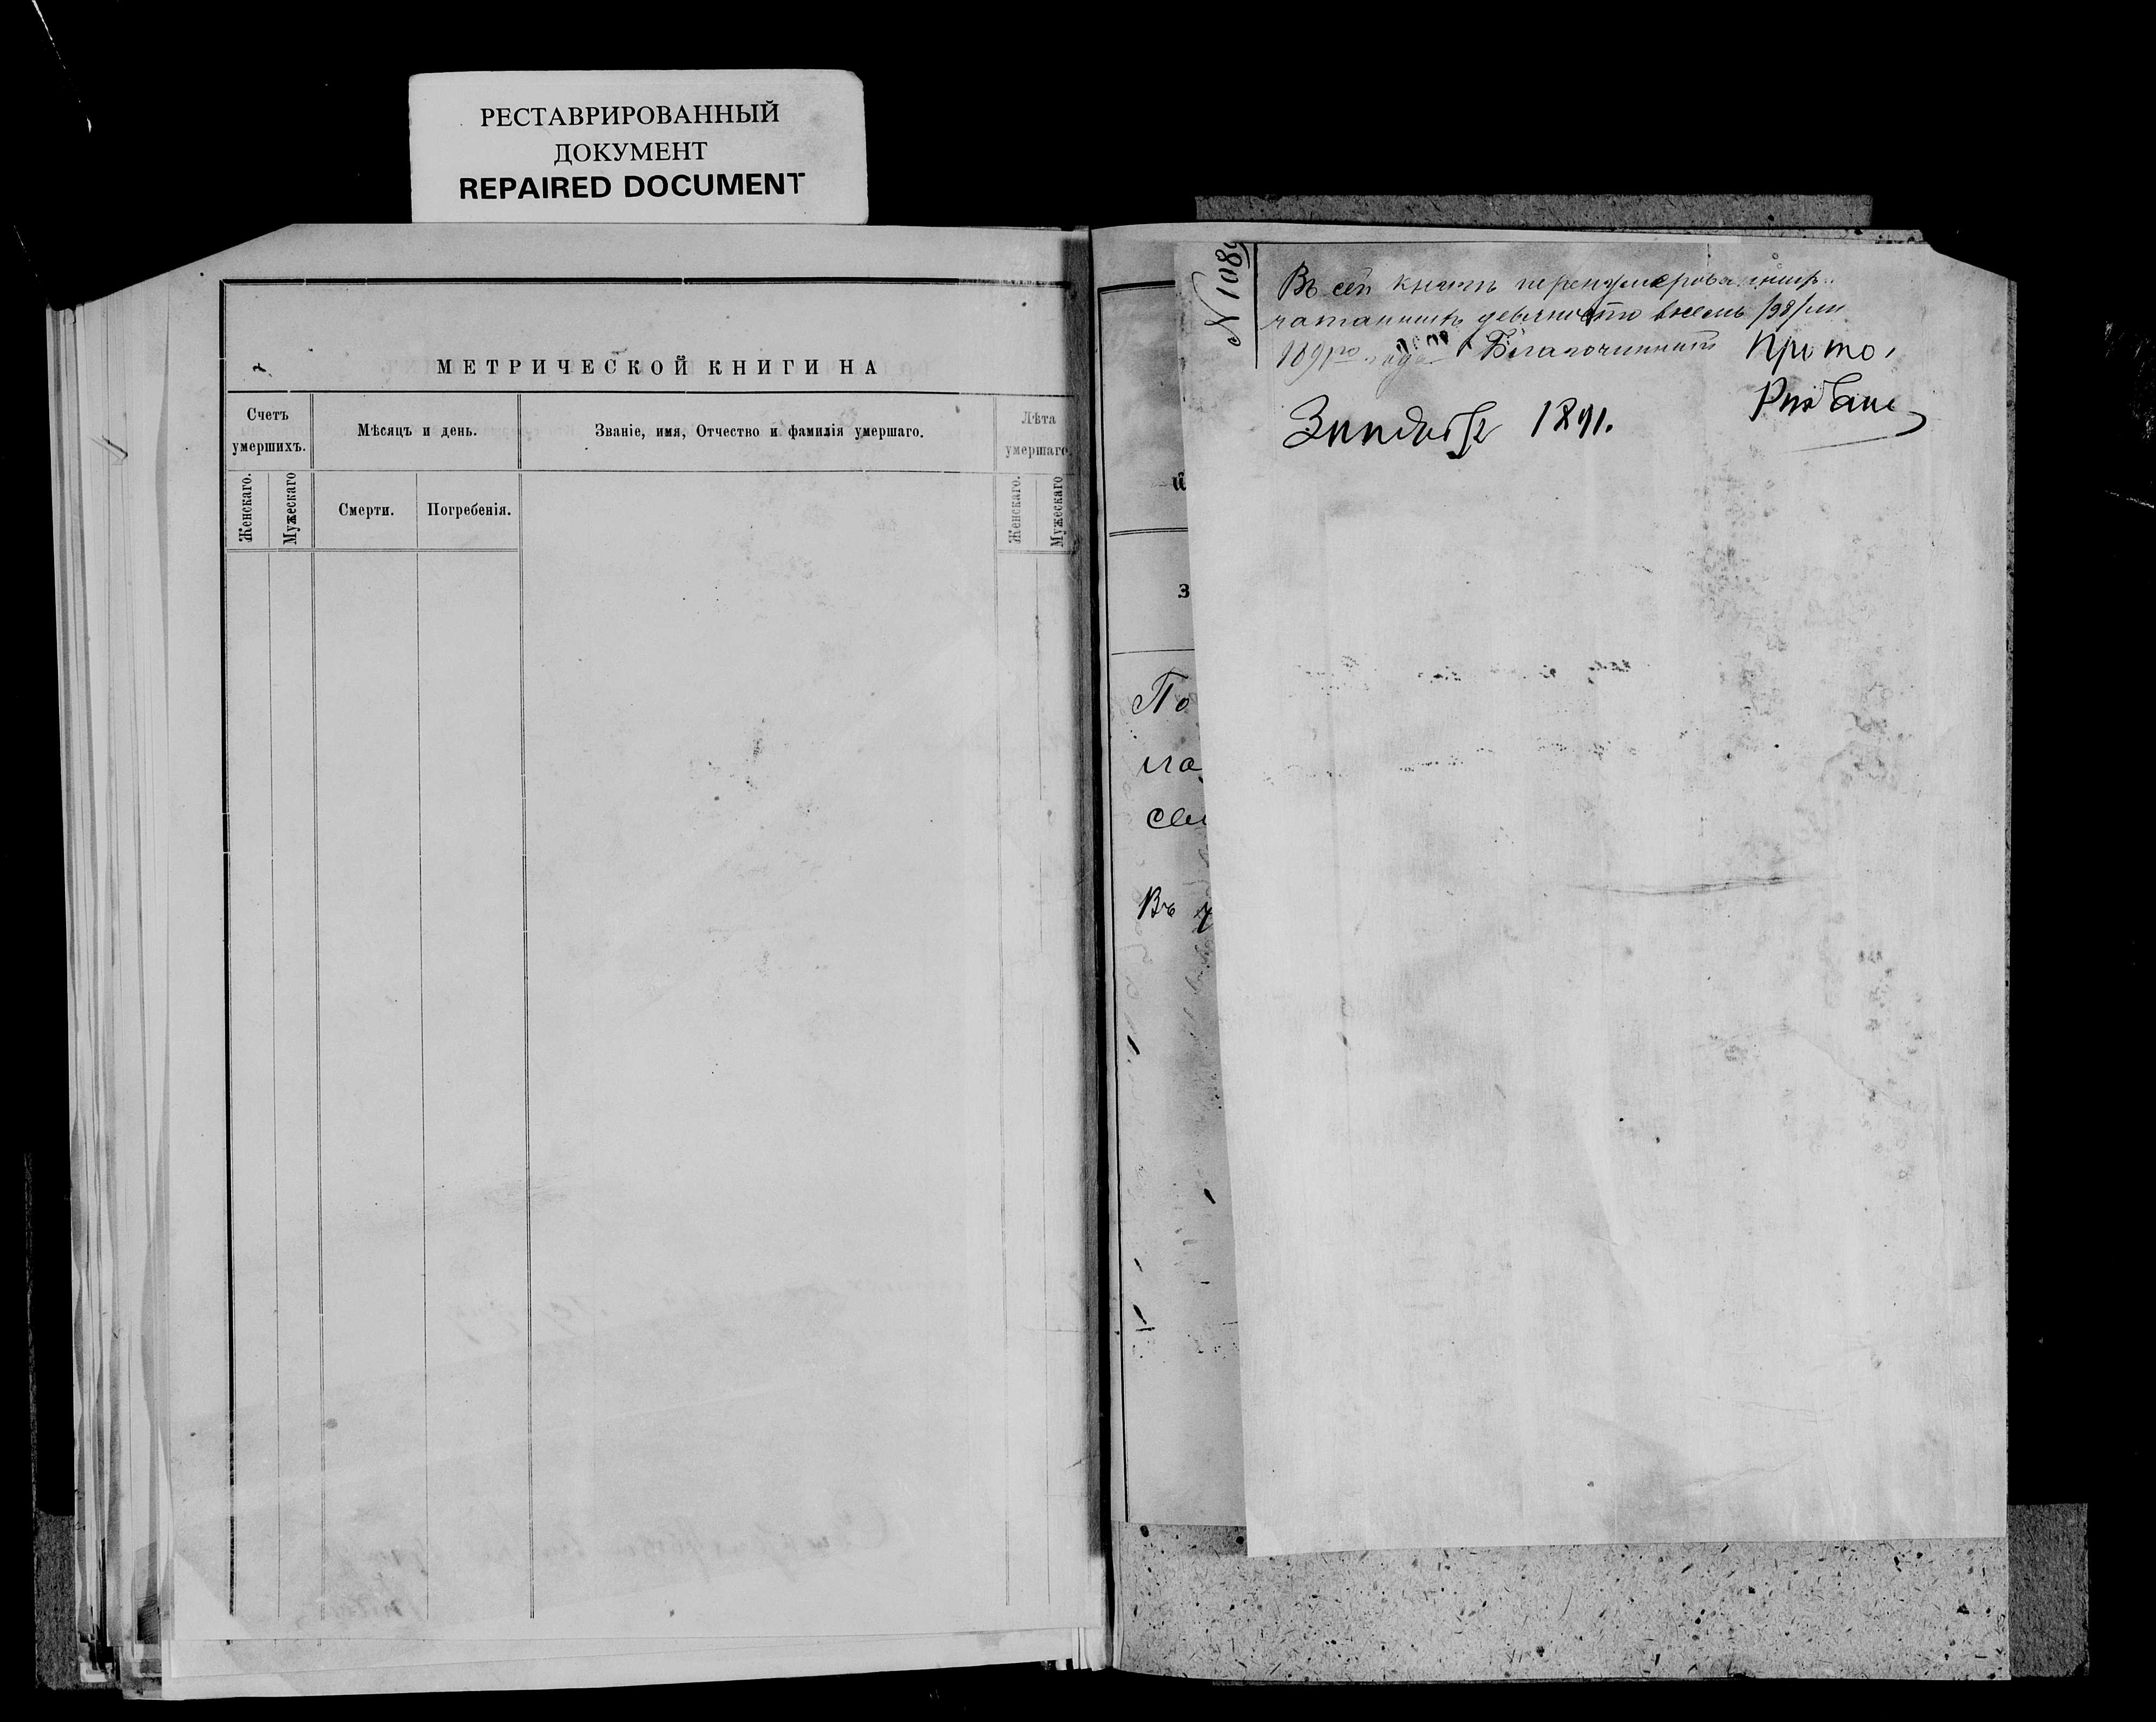 РЕСТАВРИРОВАННЫЙ
ДОКУМЕНТ
REPAIRED DOCUMENT
МЕТРИЧЕСКОЙ КНИГИ НА
Счетъ умершихъ.
Мѣсяцъ и день.
Званіе, имя, Отчество и фамилія умершаго.
Лѣта умершаго
Женскаго.
Мужескаго
Смерти.
Погребенія.
Женскаго.
Мужескаго
й
з
По
ма
сви
Въ
№ 108
Въ сей книгѣ перенумерованныхъ
девяносто восемь /98/
189 года Благочинный Прото
1891.